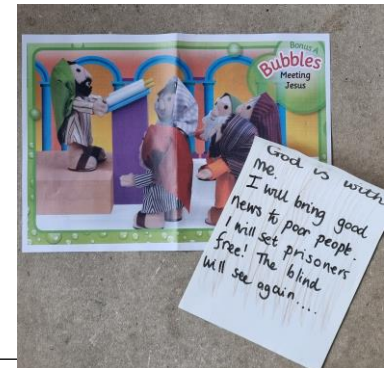 Bonus A
Bubbles
Meeting
Jesus
God is with
me.
I will bring good
news to poor people.
I will set prisoners
free! The blind
will see again....